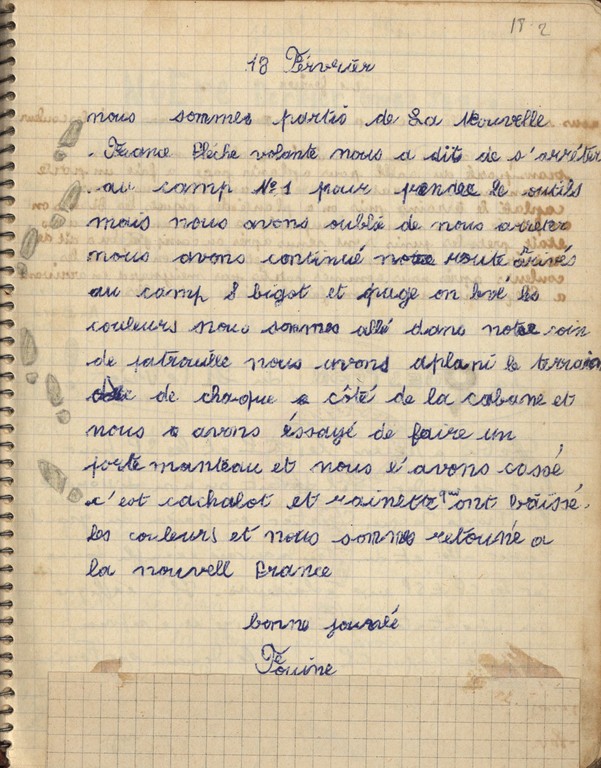 18-2
18 Février
nous sommes partis de La Nouvelle
France Fléche volante nous a dit de s'arrêter
au camp No 1 pour prendre le outils
mais nous avons oublié de nous arreter
nous avons continué notre route arivés
au camp S bigot et page on levé les
couleurs nous sommes allé dans notre coin
de patrouille nous avons aplani le terraion
de chaque côté de la cabane et
nous avons éssayé de faire un
porte manteau et nous l'avons cassé
c'est cachalot et rainette qui ont baissé
les couleurs et nous sommes retouné a
la nouvell France
bonne journéé
Fouine